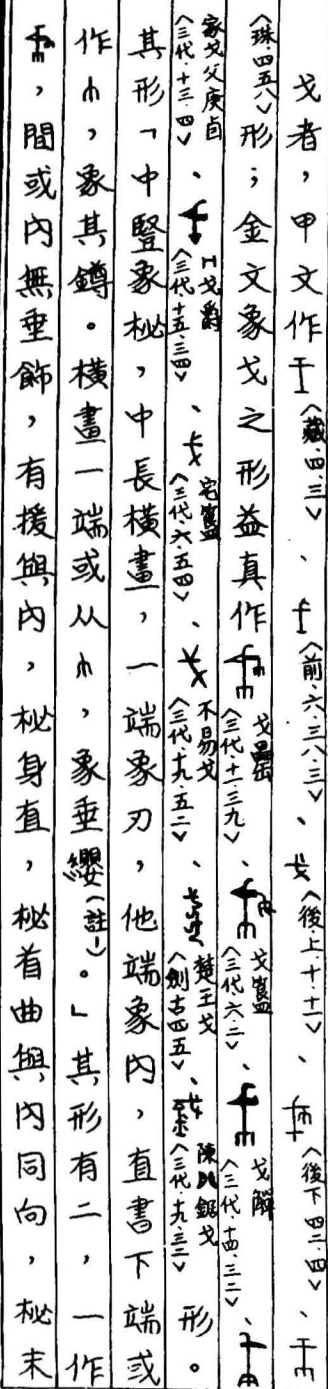 戈者，甲文作〈藏.四.三〉、〈前.六.三八.三〉、〈後.上.十.十一〉、〈後下.四二.四〉、
〈珠.四五八〉形；金文象戈之形益真作戈罍〈三代.十一.三九〉、戈簋〈三代.六.二〉、戈觶〈三代.十四.三二〉、
家戈父庚卣〈三代.十三.四〉、戈爵〈三代.十五.三四〉、宅簋〈三代.六.五四〉、不易戈〈三代.十九.五二〉、楚王戈〈劍古四五〉、陳鋸戈〈三代.十九.三二〉形。
其形「中豎象柲，中長橫畫，一端象刃，他端象內，直書下端或
作，象其鐏。橫畫一端或从，象垂纓（註一）。」其形有二，一作
，間或內無垂飾，有援與內，柲身直，柲首曲與內同向，柲末